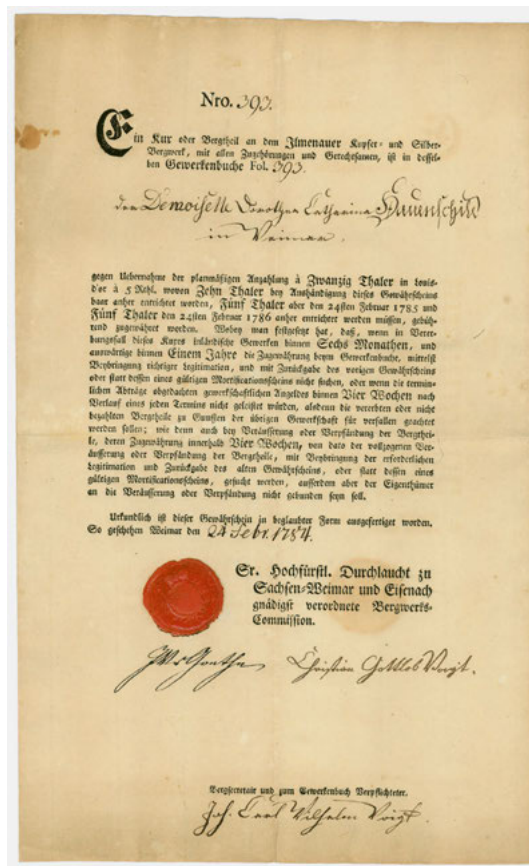 Nro. 393.
Ein Kux oder Bergtheil an dem Ilmenauer Kupfer- und Silber-
Bergwerk, mit allen Zugehörungen und Gerechtsamen, ist in dessel-
ben Gewerkenbuche Fol. 393.
der Demoiselle Dorothea Catharina
in Weimar.
gegen Uebernahme der planmäsigen Anzahlung à Zwanzig Thaler in Louis-
d'or à 5 Rthl. wovon Zehn Thaler bey Aushändigung dieses Gewährscheins
baar anher entrichtet worden, Fünf Thaler aber den 24sten Februar 1785 und
Fünf Thaler den 24sten Februar 1786 anher entrichtet werden müssen, gebüh-
rend zugewähret worden. Wobey man festgesetzt hat, daß, wenn in Verer-
bungsfall dieses Kuxes inländische Gewerken binnen Sechs Monathen, und
auswärtige binnen Einem Jahre die Zugewährung beym Gewerkenbuche, mittelst
Beybringung richtiger Legitimation, und mit Zurückgabe des vorigen Gewährscheins
oder statt dessen eines gültigen Mortificationscheins nicht suchen, oder wenn die termin-
lichen Abträge abgedachten gewerkschaftlichen Angeldes binnen Vier Wochen nach
Verlauf eines jeden Termins nicht geleistet würden, alsdenn die vererbten oder nicht
bezahlten Bergtheile zu Gunsten der übrigen Gewerkschaft für verfallen geachtet
werden sollen; wie denn auch bey Veräusserung oder Verpfändung der Bergthei-
le, deren Zugewährung innerhalb Vier Wochen, von dato der vollzogenen Ver-
äusserung oder Verpfändung der Bergtheile, mit Beybringung der erforderlichen
Legitimation und Zurückgabe des alten Gewährscheins, oder statt dessen eines
gültigen Mortificationscheins, gesucht werden, ausserdem aber der Eigenthümer
an die Veräusserung oder Verpfändung nicht gebunden seyn soll.
Urkundlich ist dieser Gewährschein in beglaubter Form ausgefertiget worden.
So geschehen Weimar den 24 Febr. 1784.
Sr. Hochfürstl. Durchlaucht zu
Sachsen-Weimar und Eisenach
gnädigst verordnete Bergwerks-
Commission.
JWvGoethe Christian Gottlob Voigt.
Bergsecretair und zum Gewerkenbuch Verpflichteter.
Joh. Carl Wilhelm Voigt.